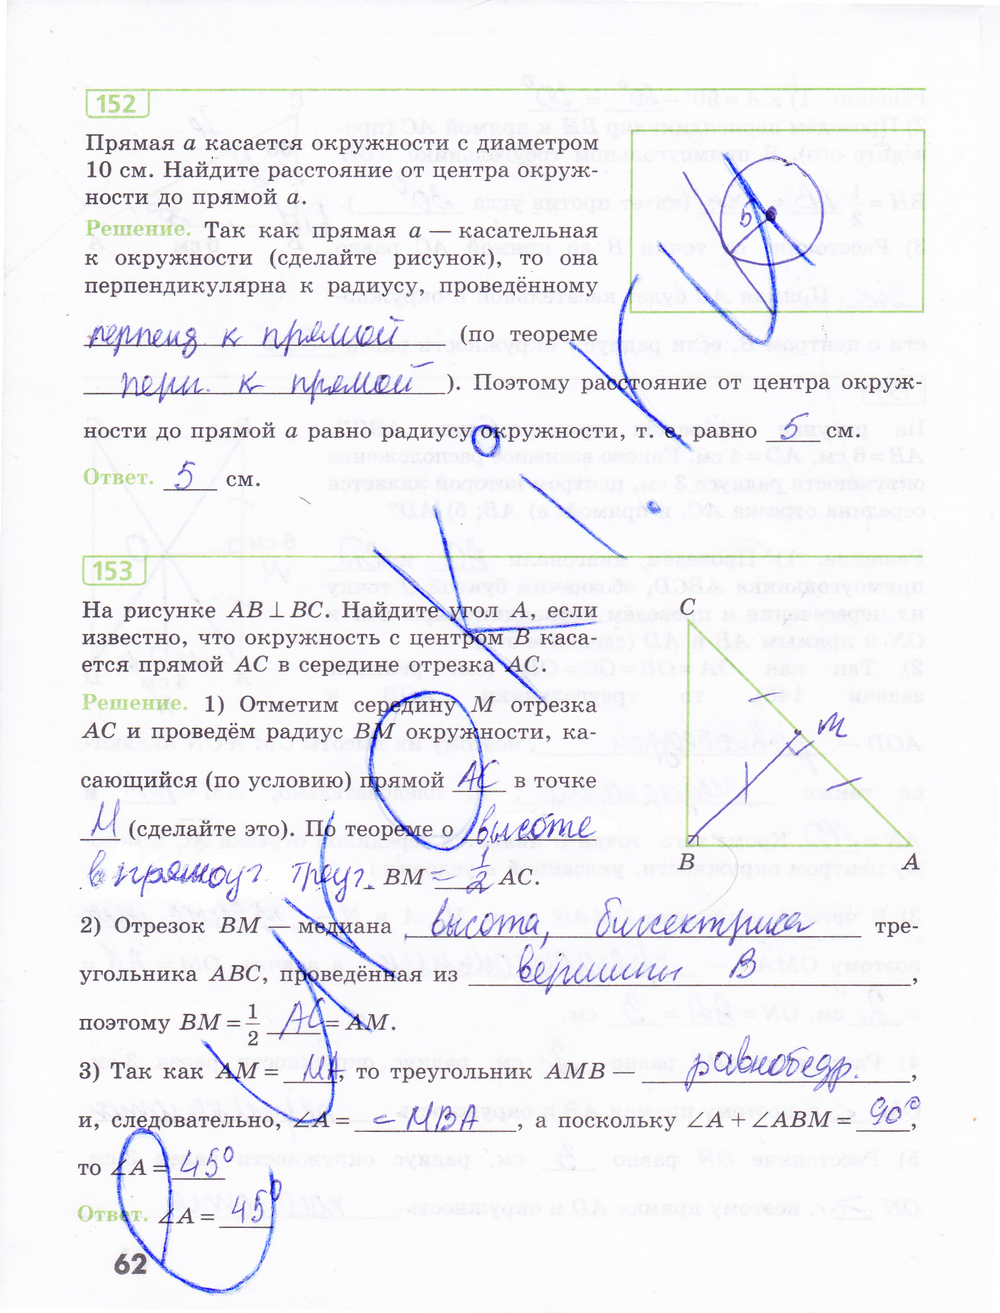 152
Прямая a касается окружности с диаметром
10 см. Найдите расстояние от центра окруж-
ности до прямой a.
Решение. Так как прямая a — касательная
к окружности (сделайте рисунок), то она
перпендикулярна к радиусу, проведённому
перпенд. к прямой (по теореме
перп. к прямой ). Поэтому расстояние от центра окруж-
ности до прямой a равно радиусу окружности, т. е. равно 5 см.
Ответ. 5 см.
5
153
На рисунке AB ⊥ BC. Найдите угол A, если
известно, что окружность с центром B каса-
ется прямой AC в середине отрезка AC.
Решение. 1) Отметим середину M отрезка
AC и проведём радиус BM окружности, ка-
сающийся (по условию) прямой AC в точке
M (сделайте это). По теореме о высоте
в прямоуг. треуг. BM = 1/2 AC.
C
m
B
A
2) Отрезок BM — медиана , высота, биссектриса тре-
угольника ABC, проведённая из вершины B ,
поэтому BM = 1/2 AC = AM.
3) Так как AM = МА, то треугольник AMB — равнобедр. ,
и, следовательно, ∠A = = МВА , а поскольку ∠A + ∠ABM = 90°,
то ∠A = 45°
Ответ. ∠A = 45°
62